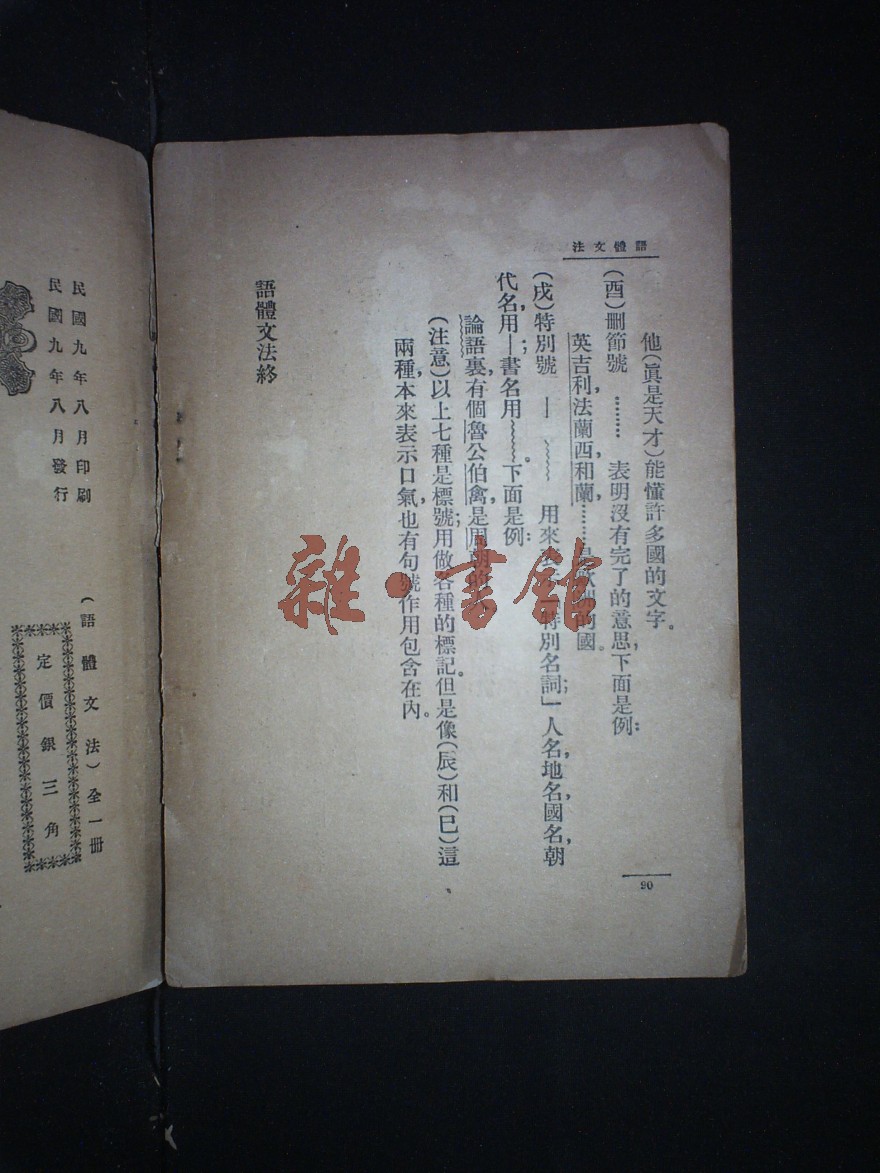 語體文法
他(眞是天才)能懂許多國的文字。
(酉)刪節號 ……… 表明沒有完了的意思,下面是例:
英吉利,法蘭西,和蘭,……是歐洲的國。
(戌)特別號 — ﹏﹏ 用來表示「特別名詞;」人名,地名,國名,朝
代名,用—;書名用﹏﹏。下面是例:
論語裏,有個魯公伯禽,是周朝的
(注意)以上七種是標號;用做各種的標記。但是像(辰)和(巳)這
兩種,本來表示口氣,也有句號作用包含在內。
語體文法終
90
民國九年八月印刷
民國九年八月發行
(語體文法)全一冊
定價銀三角
雜·書館